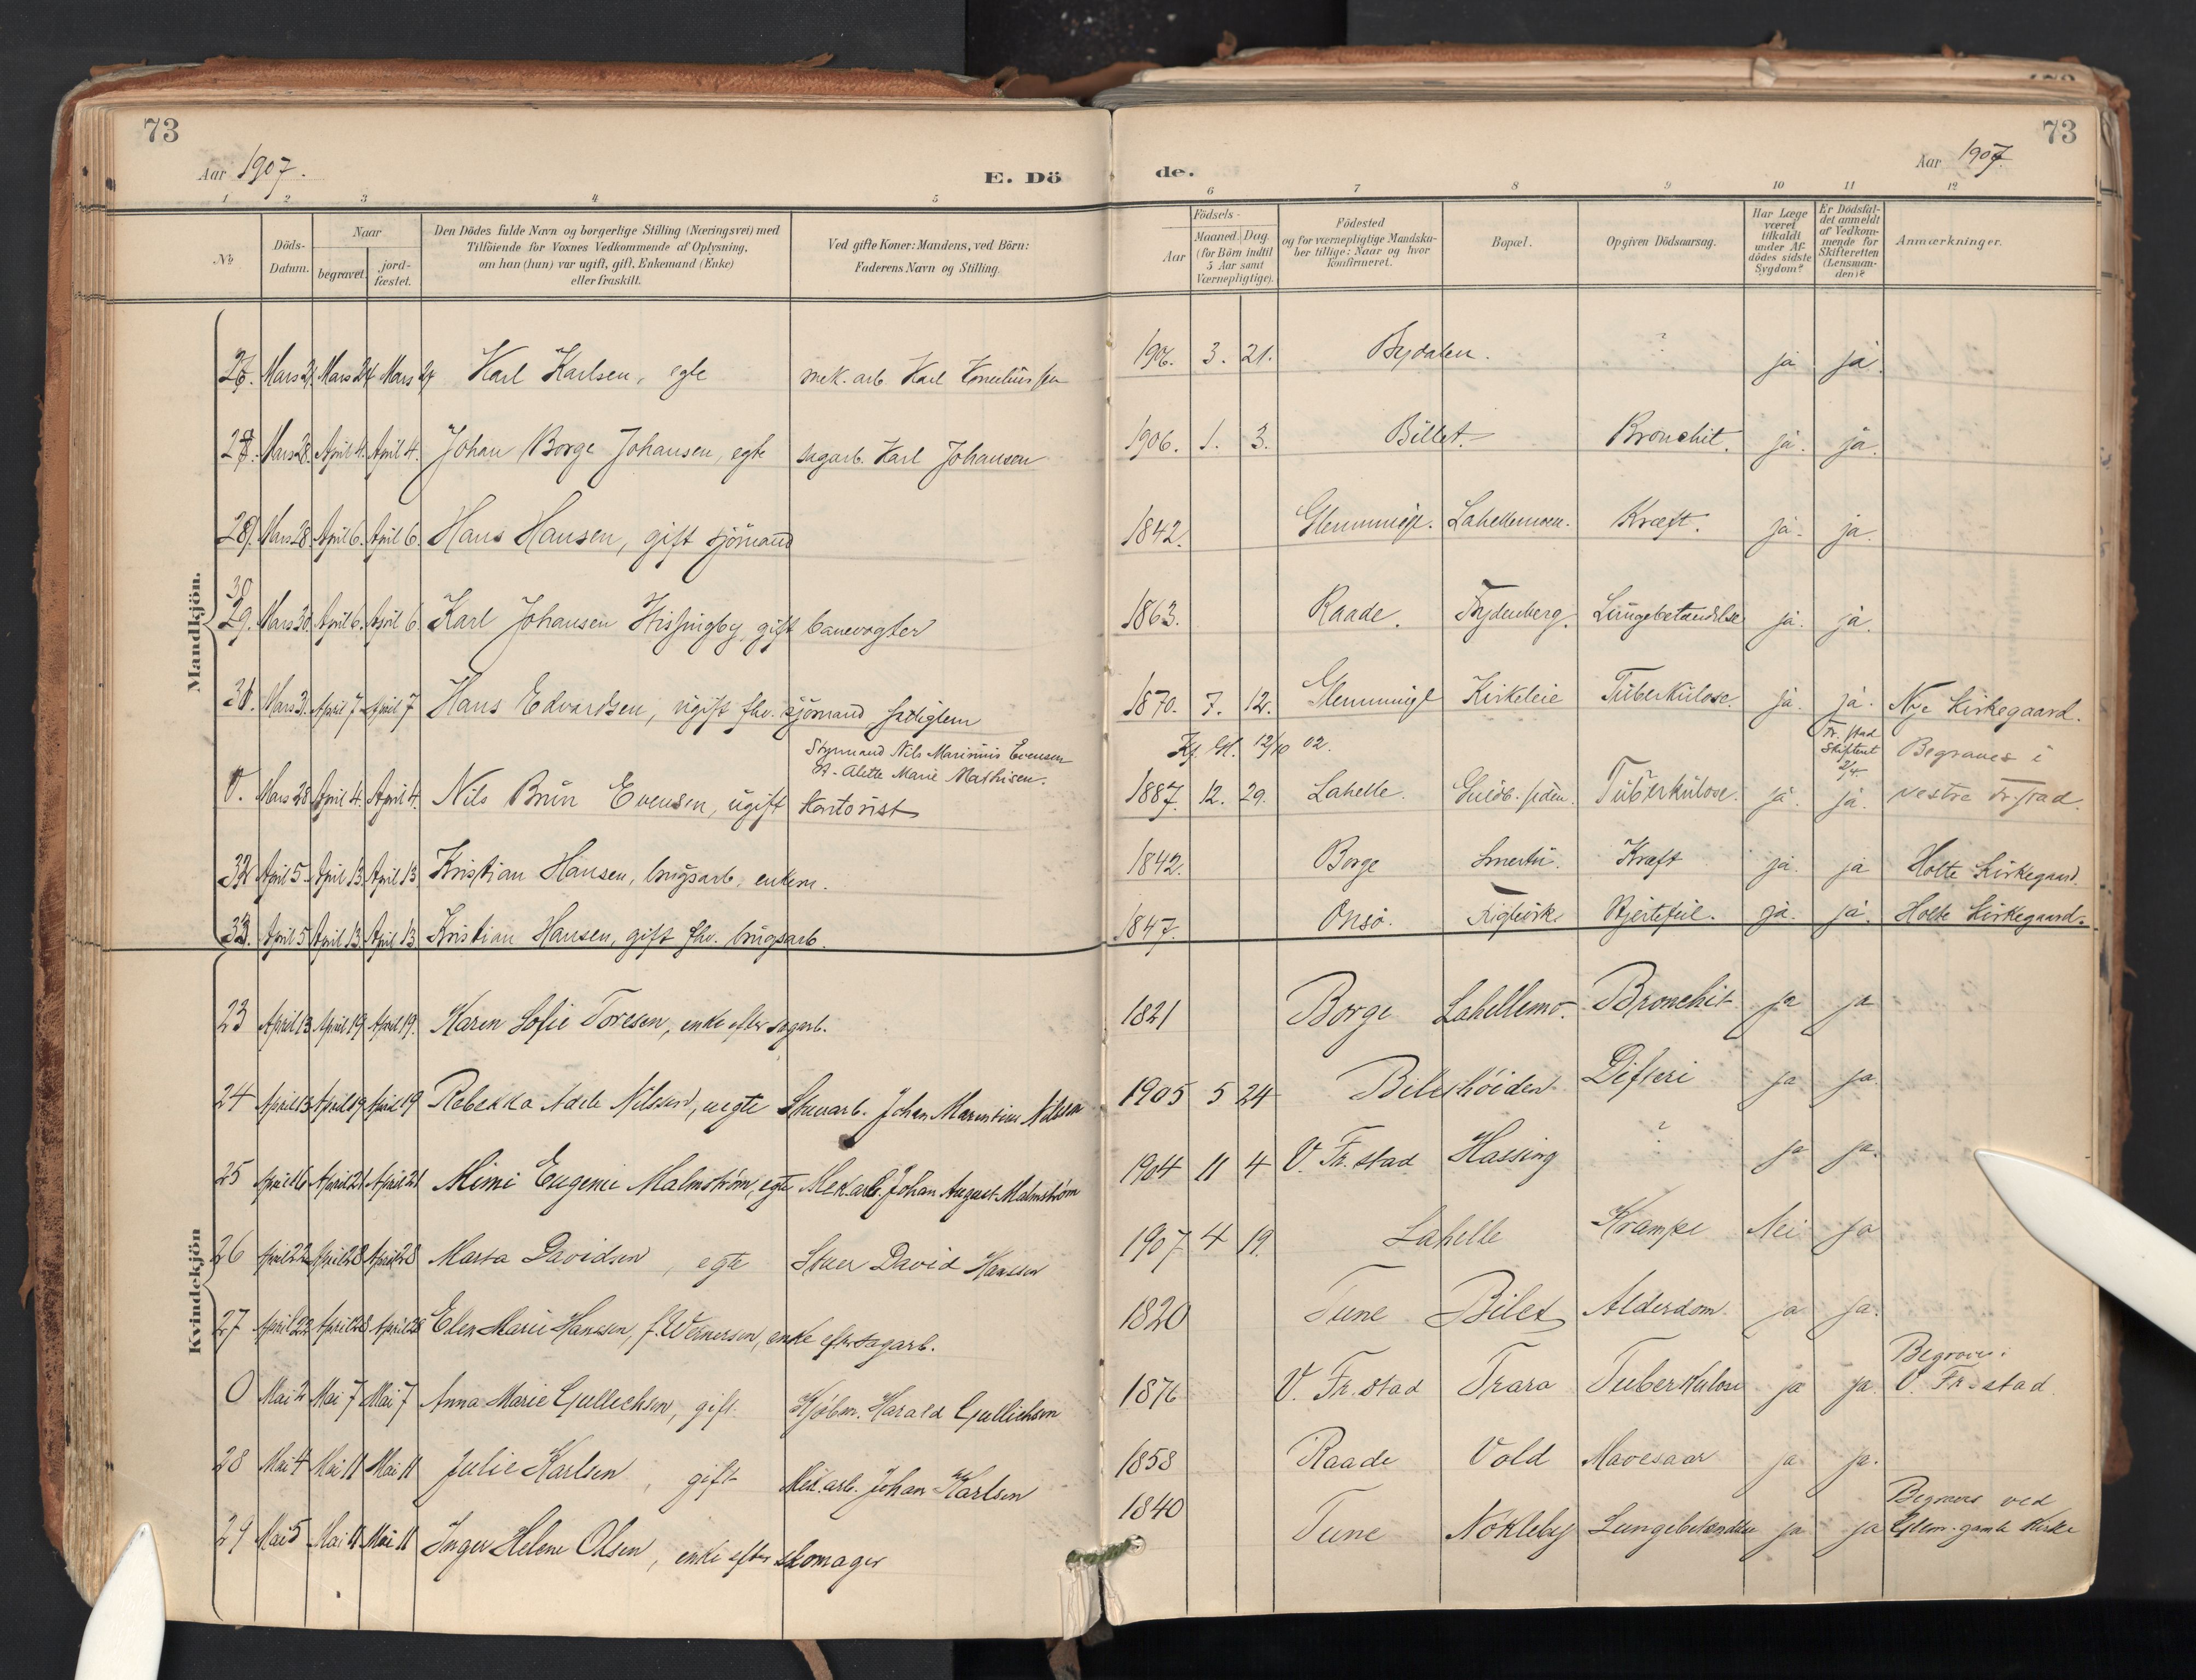 73
73
Aar 1907.
E. Dö
de.
Aar 1907.
1 2 3 4 5 6 7 8 9 10 11 12
No
Döds-Datum.
Naar
begravet.
jord-fæstet.
Den Dödes fulde Navn og borgerlige Stilling (Næringsvei) med
Tilföiende for Voxnes Vedkommende af Oplysning,
om han (hun) var ugift, gift, Enkemand (Enke)
eller fraskilt.
Ved gifte Koner: Mandens, ved Börn:
Faderens Navn og Stilling.
Födsels-
Aar
Maaned. Dag.
(for Börn indtil
5 Aar samt
Værnepligtige).
Födested
og for værnepligtige Mandska-
ber tillige: Naar og hvor
konfirmeret.
Bopæl.
Opgiven Dödsaarsag.
Har Læge
været
tilkaldt
under Af-
dödes sidste
Sygdom?
Er Dödsfal-
det anmeldt
af Vedkom-
mende for
Skifteretten
(Lensman-
den)?
Anmærkninger.
Mandkjön.
Mars 24 Mars 24 Karl Karlsen, egte mek. arb. Karl Korneliussen 1906. 3. 21. Bydalen. ? ja ja.
Mars 28. April 4. April 4. Johan Borge Johansen, egte sagarb. Karl Johansen 1906. 1. 3. Billet. Bronchit. ja. ja.
Mars 28. April 6. April 6. Hans Hansen, gift sjömand 1842. Glemminge. Lahellemoen. Kræft. ja. ja.
30
Mars 30. April 6. April 6. Karl Johansen Hissingby, gift banevogter 1863. Raade. Trydenberg. Lungebetændelse ja. ja.
Mars 31. April 7 April 7 Hans Edvardsen, ugift fhv. sjömand fattiglem 1870. 7. 12. Glemminge Kirkeleie Tuberkulose. ja. ja. Nye Kirkegaard.
Styrmand Nils Marinius Evensen
Alette Marie Mathisen.
Kf. Gl. 12/10 02.
Fr.stad
Skifteret
2/4
Begraves i
0. Mars 28 April 4. April 4. Nils Brun Evensen, ugift kontorist 1887. 12. 29. Lahelle. Tuberkulose. ja. ja. vestre Fr.stad.
32 April 5. April 13. April 13 Kristian Hansen, brugsarb. enkem. 1842. Borge Smertu. Kræft ja. ja Holte Kirkegaard.
33. April 5 April 13 April 13 Kristian Hansen, gift fhv. brugsarb. 1847. Onsö. Teglverk. Hjertefeil. ja. ja. Holte Kirkegaard.
Kvindekjön
23 April 13 April 19 April 19. Karen Sofie Toresen, enke efter sagarb. 1821 Borge Lahellemo. Bronchit ja ja
24 April 13 April 19 April 19 Rebekka Adele Nilsen, uegte Stuerarb. Johan Marentius Nilsen 1905 5 24 Bilethöiden Difteri ja ja.
25 April 16 April 21 April 21 Mimi Eugenie Malmström, egte Mek.arb. Johan August Malmström 1904 11 4 V. Fr.stad Hassing ? ja ja.
26 April 22 April 28 April 28 Marta Davidsen, egte Stuer David Hansen 1907 4 19. Lahelle Krampe Nei ja
27 April 22 April 28 April 28 Elen Marie Hansen, f. Wernersen, enke eft. sagarb. 1820 Tune Bilet Alderdom ja ja.
Begraves i
0 Mai 2 Mai 7 Mai 7 Anna Marie Gullichsen, gift Kjöbm. Harald Gullichsen 1876 V. Fr.stad Trara Tuberkulose ja ja. V. Fr.stad.
28 Mai 4 Mai 11 Mai 11 Julie Karlsen, gift Mek.arb. Johan Karlsen 1858 Raade Vold Mavesaar ja ja.
Begraves ved
29 Mai 5 Mai 11 Mai 11 Inger Helene Olsen, enke efter skomager 1840 Tune Nökleby Lungebetændelse ja ja Glem. gamle Kirke